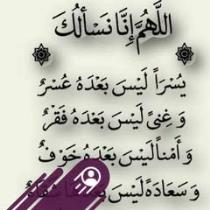 اللَّهُمَّ إِنَّا نَسْأَلُكَ
يُسْرَاً لَيْسَ بَعْدَهُ عُسْرٌ
وَ غِنَىً لَيْسَ بَعْدَهُ فَقْرٌ
وَ أَمْنَاً لَيْسَ بَعْدَهُ خَوْفٌ
وَ سَعَادَةً لَيْسَ